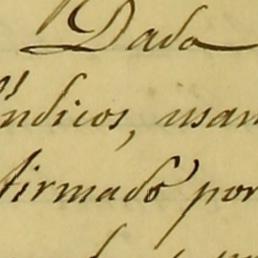 Dado
índicos, usan
firmado por